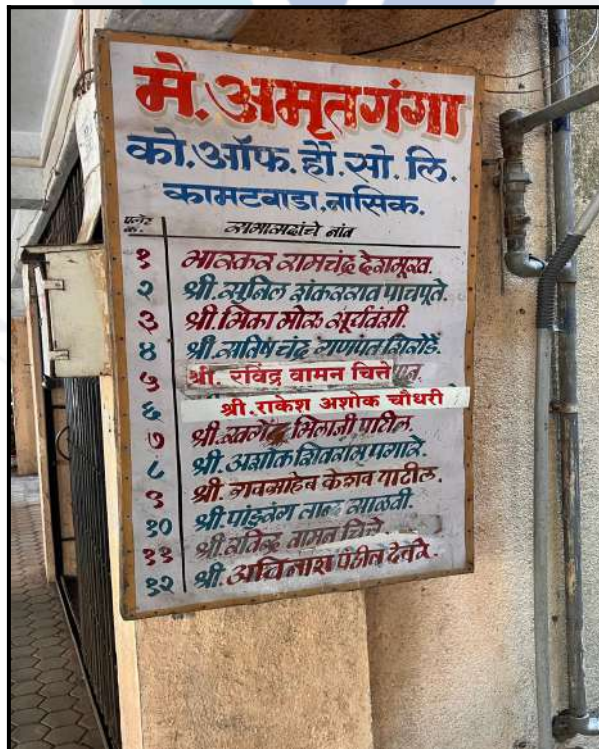 मे.अमृतगंगा
को.ऑफ.हौ.सो.लि.
कामटवाडा,नासिक.
फ्लॅट क्र. सभासदांचे नांव
१ भास्कर रामचंद्र देशमुख.
२ श्री.सुनिल शंकरराव पाचपूते.
३ श्री.भिका मोरू सूर्यवंशी.
४ श्री.सतिष चंद्र गणपत शिरोडे.
५ श्री. रविंद्र वामन चित्ते
६ श्री.राकेश अशोक चौधरी
७ श्री.खगेंद्र भिलाजी पाटील.
८ श्री.अशोक शिवराम पगारे.
९ श्री.रावसाहेब केशव पाटील.
१० श्री.पांडूरंग साळवी.
११ श्री.रविन्द्र वामन चित्ते
१२ श्री.अविनाश पंडीत देवरे.